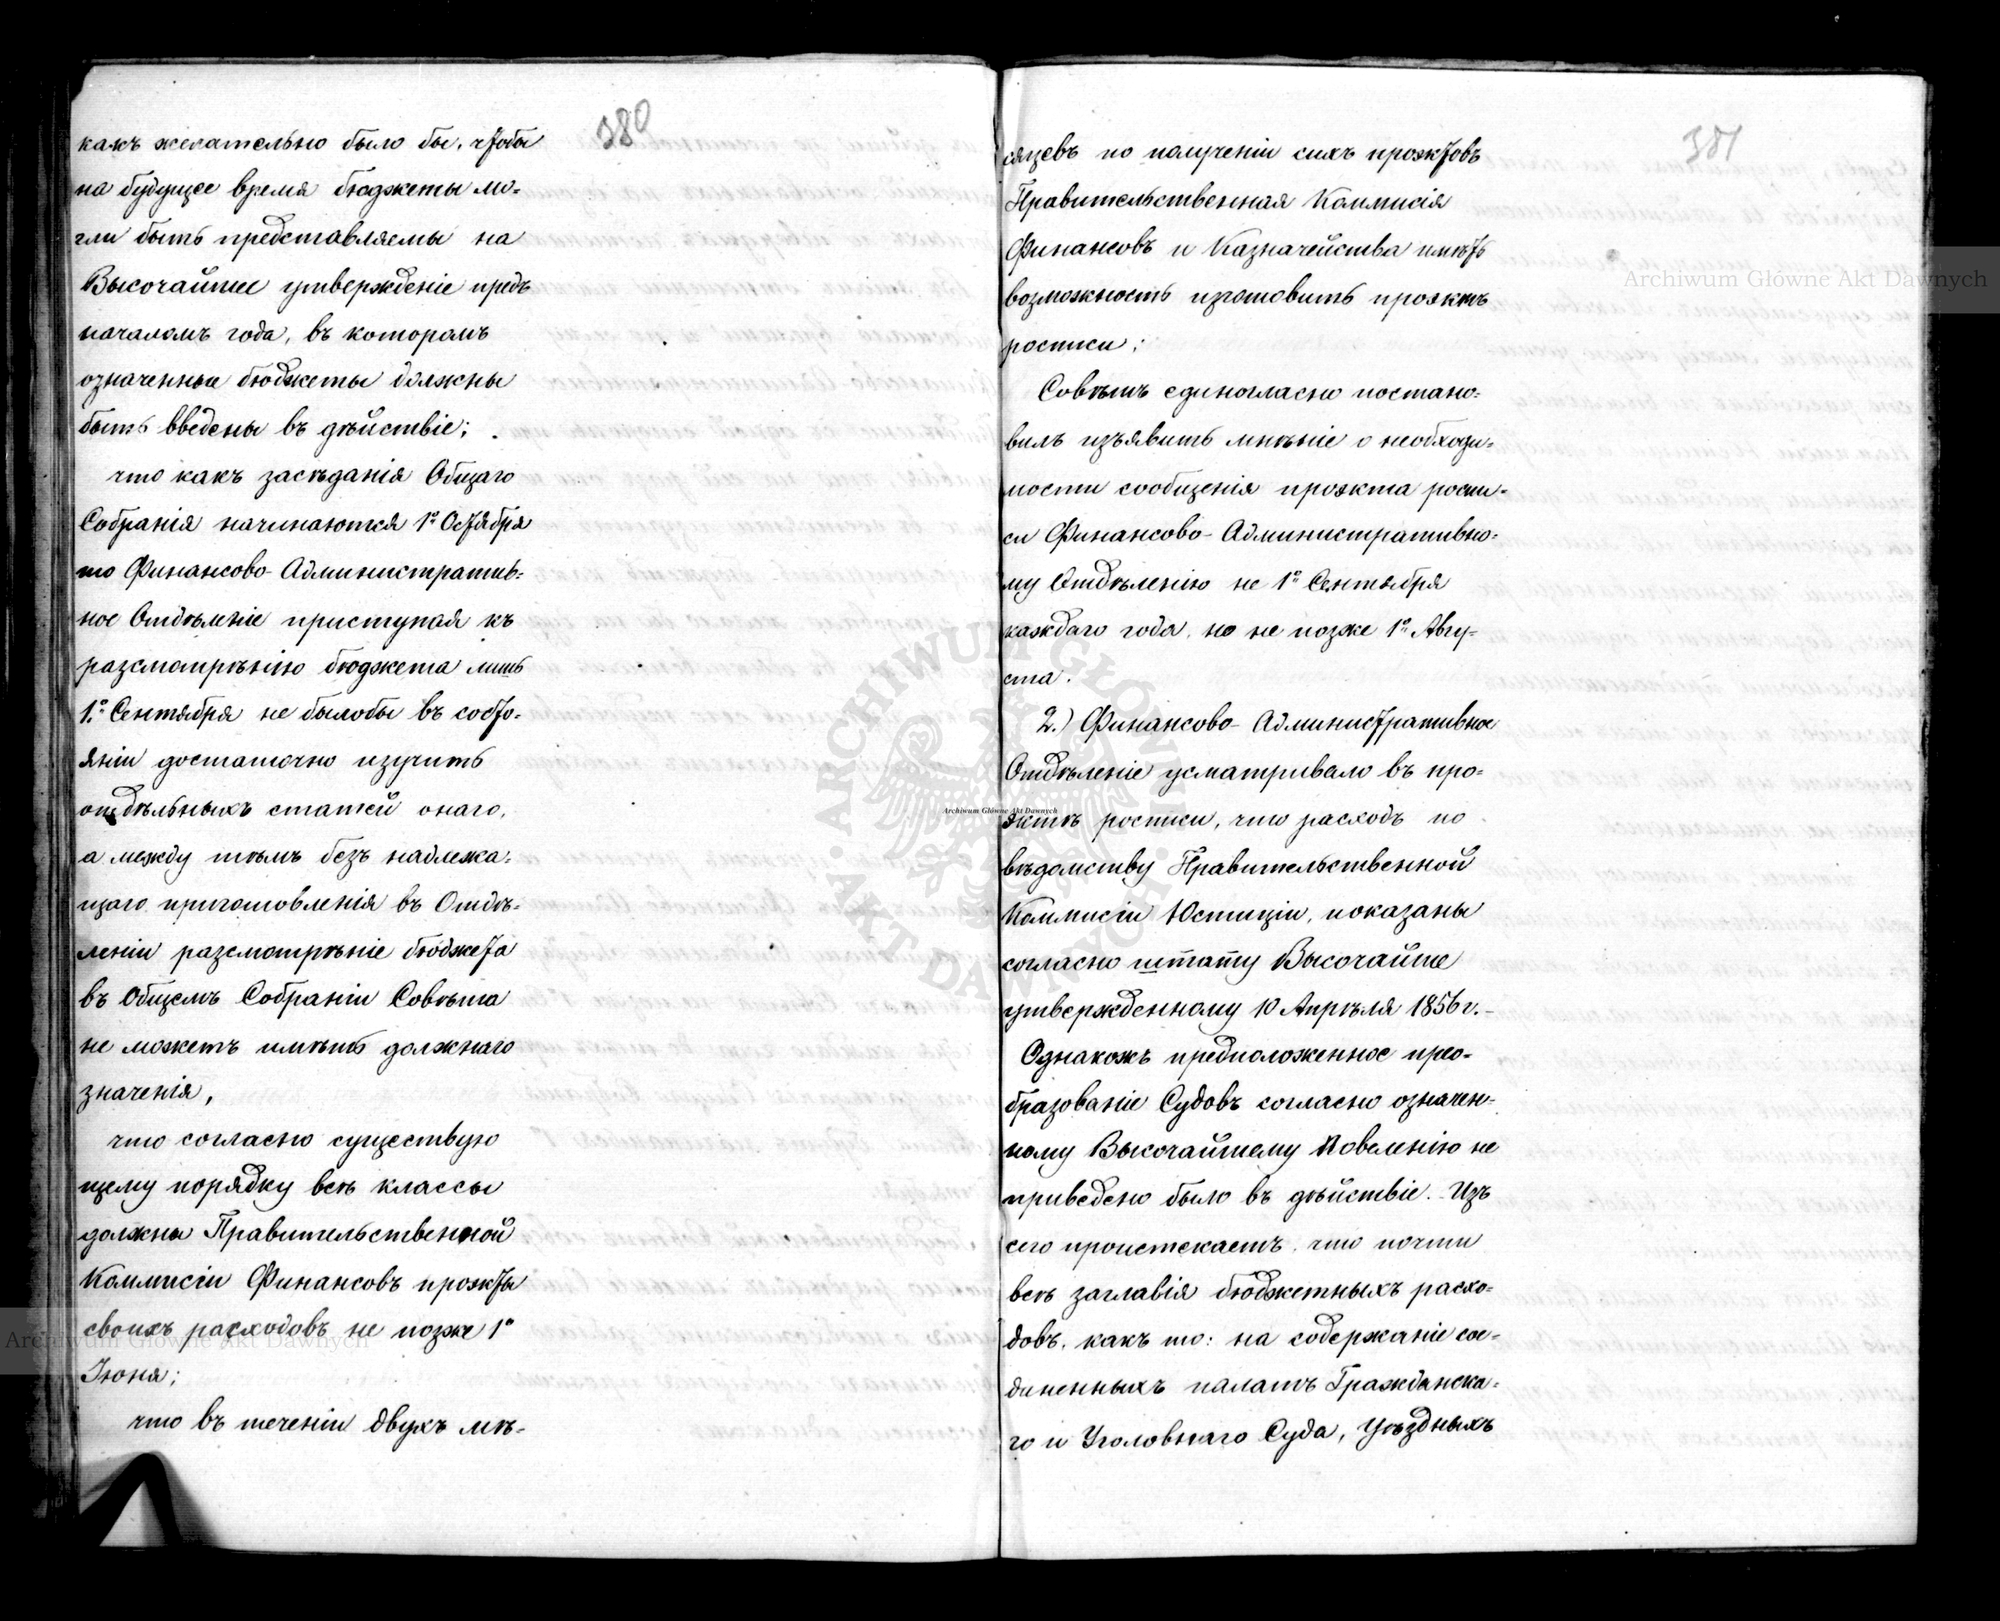 380
какъ желательно было бы, чтобы
на будущее время бюджеты мо-
гли быть представляемы на
Высочайшее утвержденіе предъ
началомъ года, въ которомъ
означенные бюджеты должны
быть введены въ дѣйствіе;
что какъ засѣданія Общаго
Собранія начинаются 1º Октября
то Финансово-Административ-
ное Отдѣленіе приступая къ
разсмотрѣнію бюджета лишь
1º Сентября не былобы въ состо-
яніи достаточно изучить
отдѣльныхъ статей онаго,
а между тѣмъ безъ надлежа-
щаго приготовленія въ Отдѣ-
леніи разсмотрѣніе бюджета
въ Общемъ Собраніи Совѣта
не можетъ имѣть должнаго
значенія,
что согласно существую
щему порядку всѣ классы
должны Правительственной
Коммисіи Финансовъ проэкты
своихъ расходовъ не позже 1º
Іюня;
что въ теченіи двухъ мѣ-
381
сяцевъ по полученіи сихъ проэктовъ
Правительственная Коммисія
Финансовъ и Казначейства имѣтъ
возможность изготовить проэктъ
росписи;
Совѣтъ единогласно постано-
вилъ изъявить мнѣніе о необходи-
мости сообщенія проэкта роспи-
си Финансово-Административно-
му Отдѣленію не 1º Сентября
каждаго года, но не позже 1º Авгу-
ста.
2.) Финансово-Административное
Отдѣленіе усматривало въ про-
эктѣ росписи, что расходъ по
вѣдомству Правительственной
Коммисіи Юстиціи, показаны
согласно штату Высочайше
утвержденному 10 Апрѣля 1856 г.-
Однакожъ предположенное прео-
бразованіе Судовъ согласно означен-
ному Высочайшему Повелѣнію не
приведено было въ дѣйствіе. Изъ
сего проистекаетъ, что почти
всѣ заглавія бюджетныхъ расхо-
довъ, какъ то: на содержаніе сое-
диненныхъ палатъ Гражданска-
го и Уголовнаго Суда, Уѣздныхъ
Archiwum Główne Akt Dawnych
Archiwum Główne Akt Dawnych
Archiwum Główne Akt Dawnych
ARCHIWUM GŁÓWNE AKT DAWNYCH